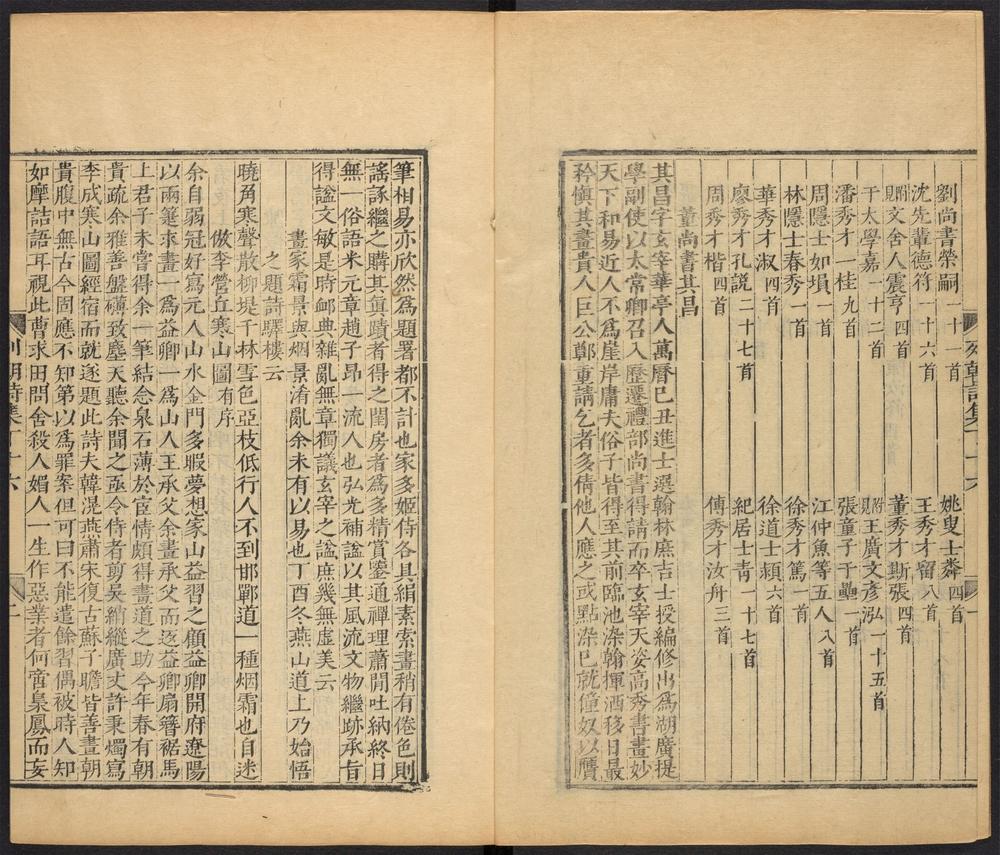 列朝詩集丁十六
一
劉尚書榮嗣一十一首
姚叟士粦四首
沈先輩德符一十六首
王秀才留八首
附見文舍人震亨四首
董秀才斯張四首
于太學嘉一十二首
附見王廣文彥泓一十五首
潘秀才一桂九首
張童子于壘一首
周隱士如塤一首
江仲魚等五人八首
林隱士春秀一首
徐秀才篤一首
華秀才淑四首
徐道士熲六首
廖秀才孔說二十七首
紀居士青一十七首
周秀才楷四首
傅秀才汝舟三首
董尚書其昌
其昌字玄宰華亭人萬曆己丑進士選翰林庶吉士授編修出爲湖廣提
學副使以太常卿召入歷遷禮部尚書得請而卒玄宰天姿高秀書畫妙
天下和易近人不爲崖岸庸夫俗子皆得至其前臨池染翰揮洒移日最
矜愼其畫貴人巨公鄭重請乞者多倩他人應之或點染已就僮奴以贋
筆相易亦欣然爲題署都不計也家多姬侍各具絹素索畫稍有倦色則
謠諑繼之購其眞蹟者得之閨房者爲多精賞鑒通禪理蕭閒吐納終日
無一俗語米元章趙子昂一流人也弘光補諡以其風流文物繼跡承旨
得諡文敏是時卹典雜亂無章獨議玄宰之諡庶幾無虛美云
畫家霜景與烟景淆亂余未有以易也丁酉冬燕山道上乃始悟
之題詩驛樓云
曉角寒聲散柳堤千林雪色亞枝低行人不到邯鄲道一種烟霜也自迷
倣李營丘寒山圖有序
余自弱冠好寫元人山水金門多暇夢想家山益習之顧益卿開府遼陽
以兩箑求畫一爲益卿一爲山人王承父余畫承父而返益卿扇簪裾馬
上君子未嘗得余一筆結念泉石薄於宦情頗得畫道之助今年春有朝
貴疏余雅善盤礡致塵天聽余聞之亟令侍者剪吳綃縱廣丈許秉燭寫
李成寒山圖經宿而就遂題此詩夫韓滉燕肅宋復古蘇子瞻皆善畫朝
貴腹中無古今固應不知第以爲罪案但可曰不能遣餘習偶被時人知
如摩詰語耳視此曹求田問舍殺人媚人一生作惡業者何啻梟鳳而妄
列朝詩集丁十六
二